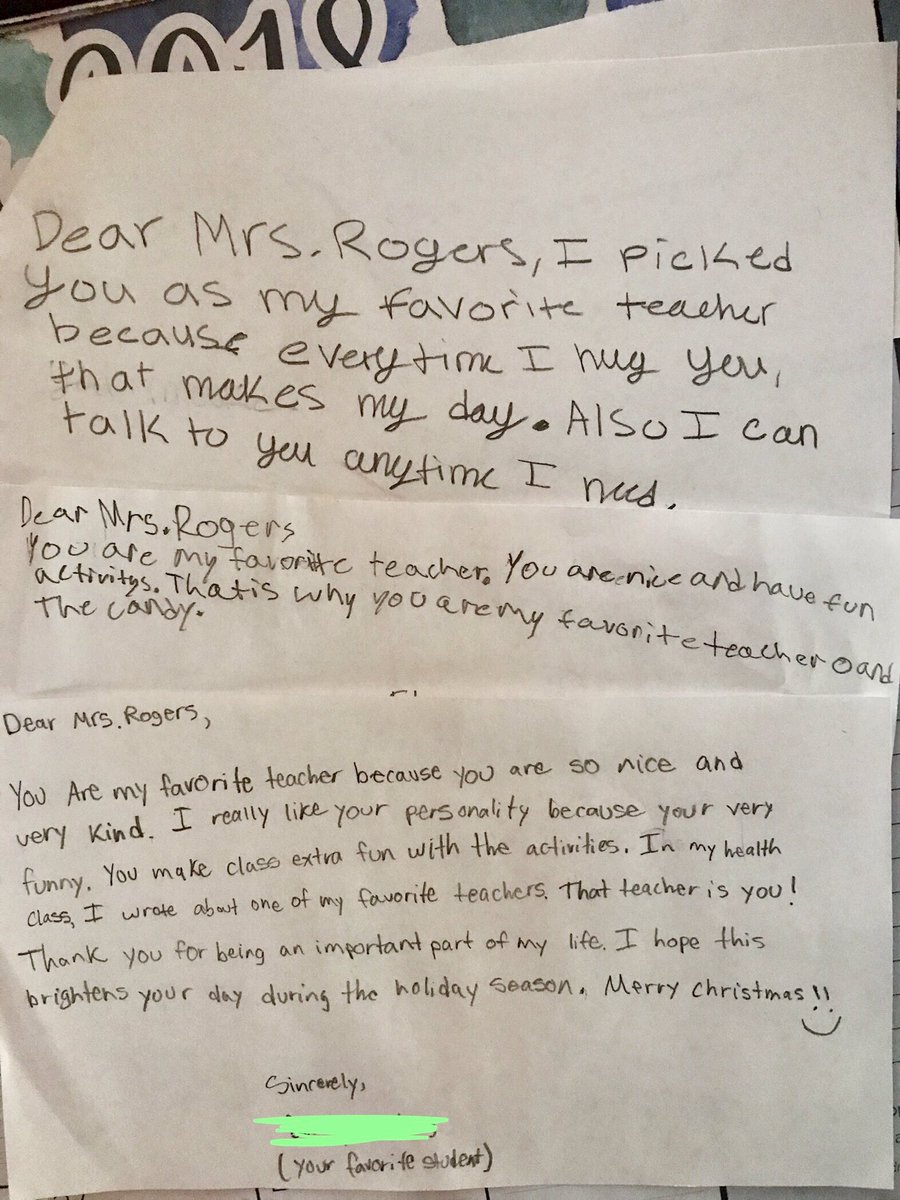 2018
Dear Mrs. Rogers, I picked
you as my favorite teacher
because everytime I hug you,
that makes my day. Also I can
talk to you anytime I need.
Dear Mrs. Rogers
You are my favorite teacher. You are nice and have fun
activitys. That is why you are my favorite teacher and
The candy.
Dear Mrs. Rogers,
You Are my favorite teacher because you are so nice and
very kind. I really like your personality because your very
funny. You make class extra fun with the activities. In my health
class, I wrote about one of my favorite teachers. That teacher is you!
Thank you for being an important part of my life. I hope this
brightens your day during the holiday season. Merry Christmas!!
Sincerely,
(your favorite student)